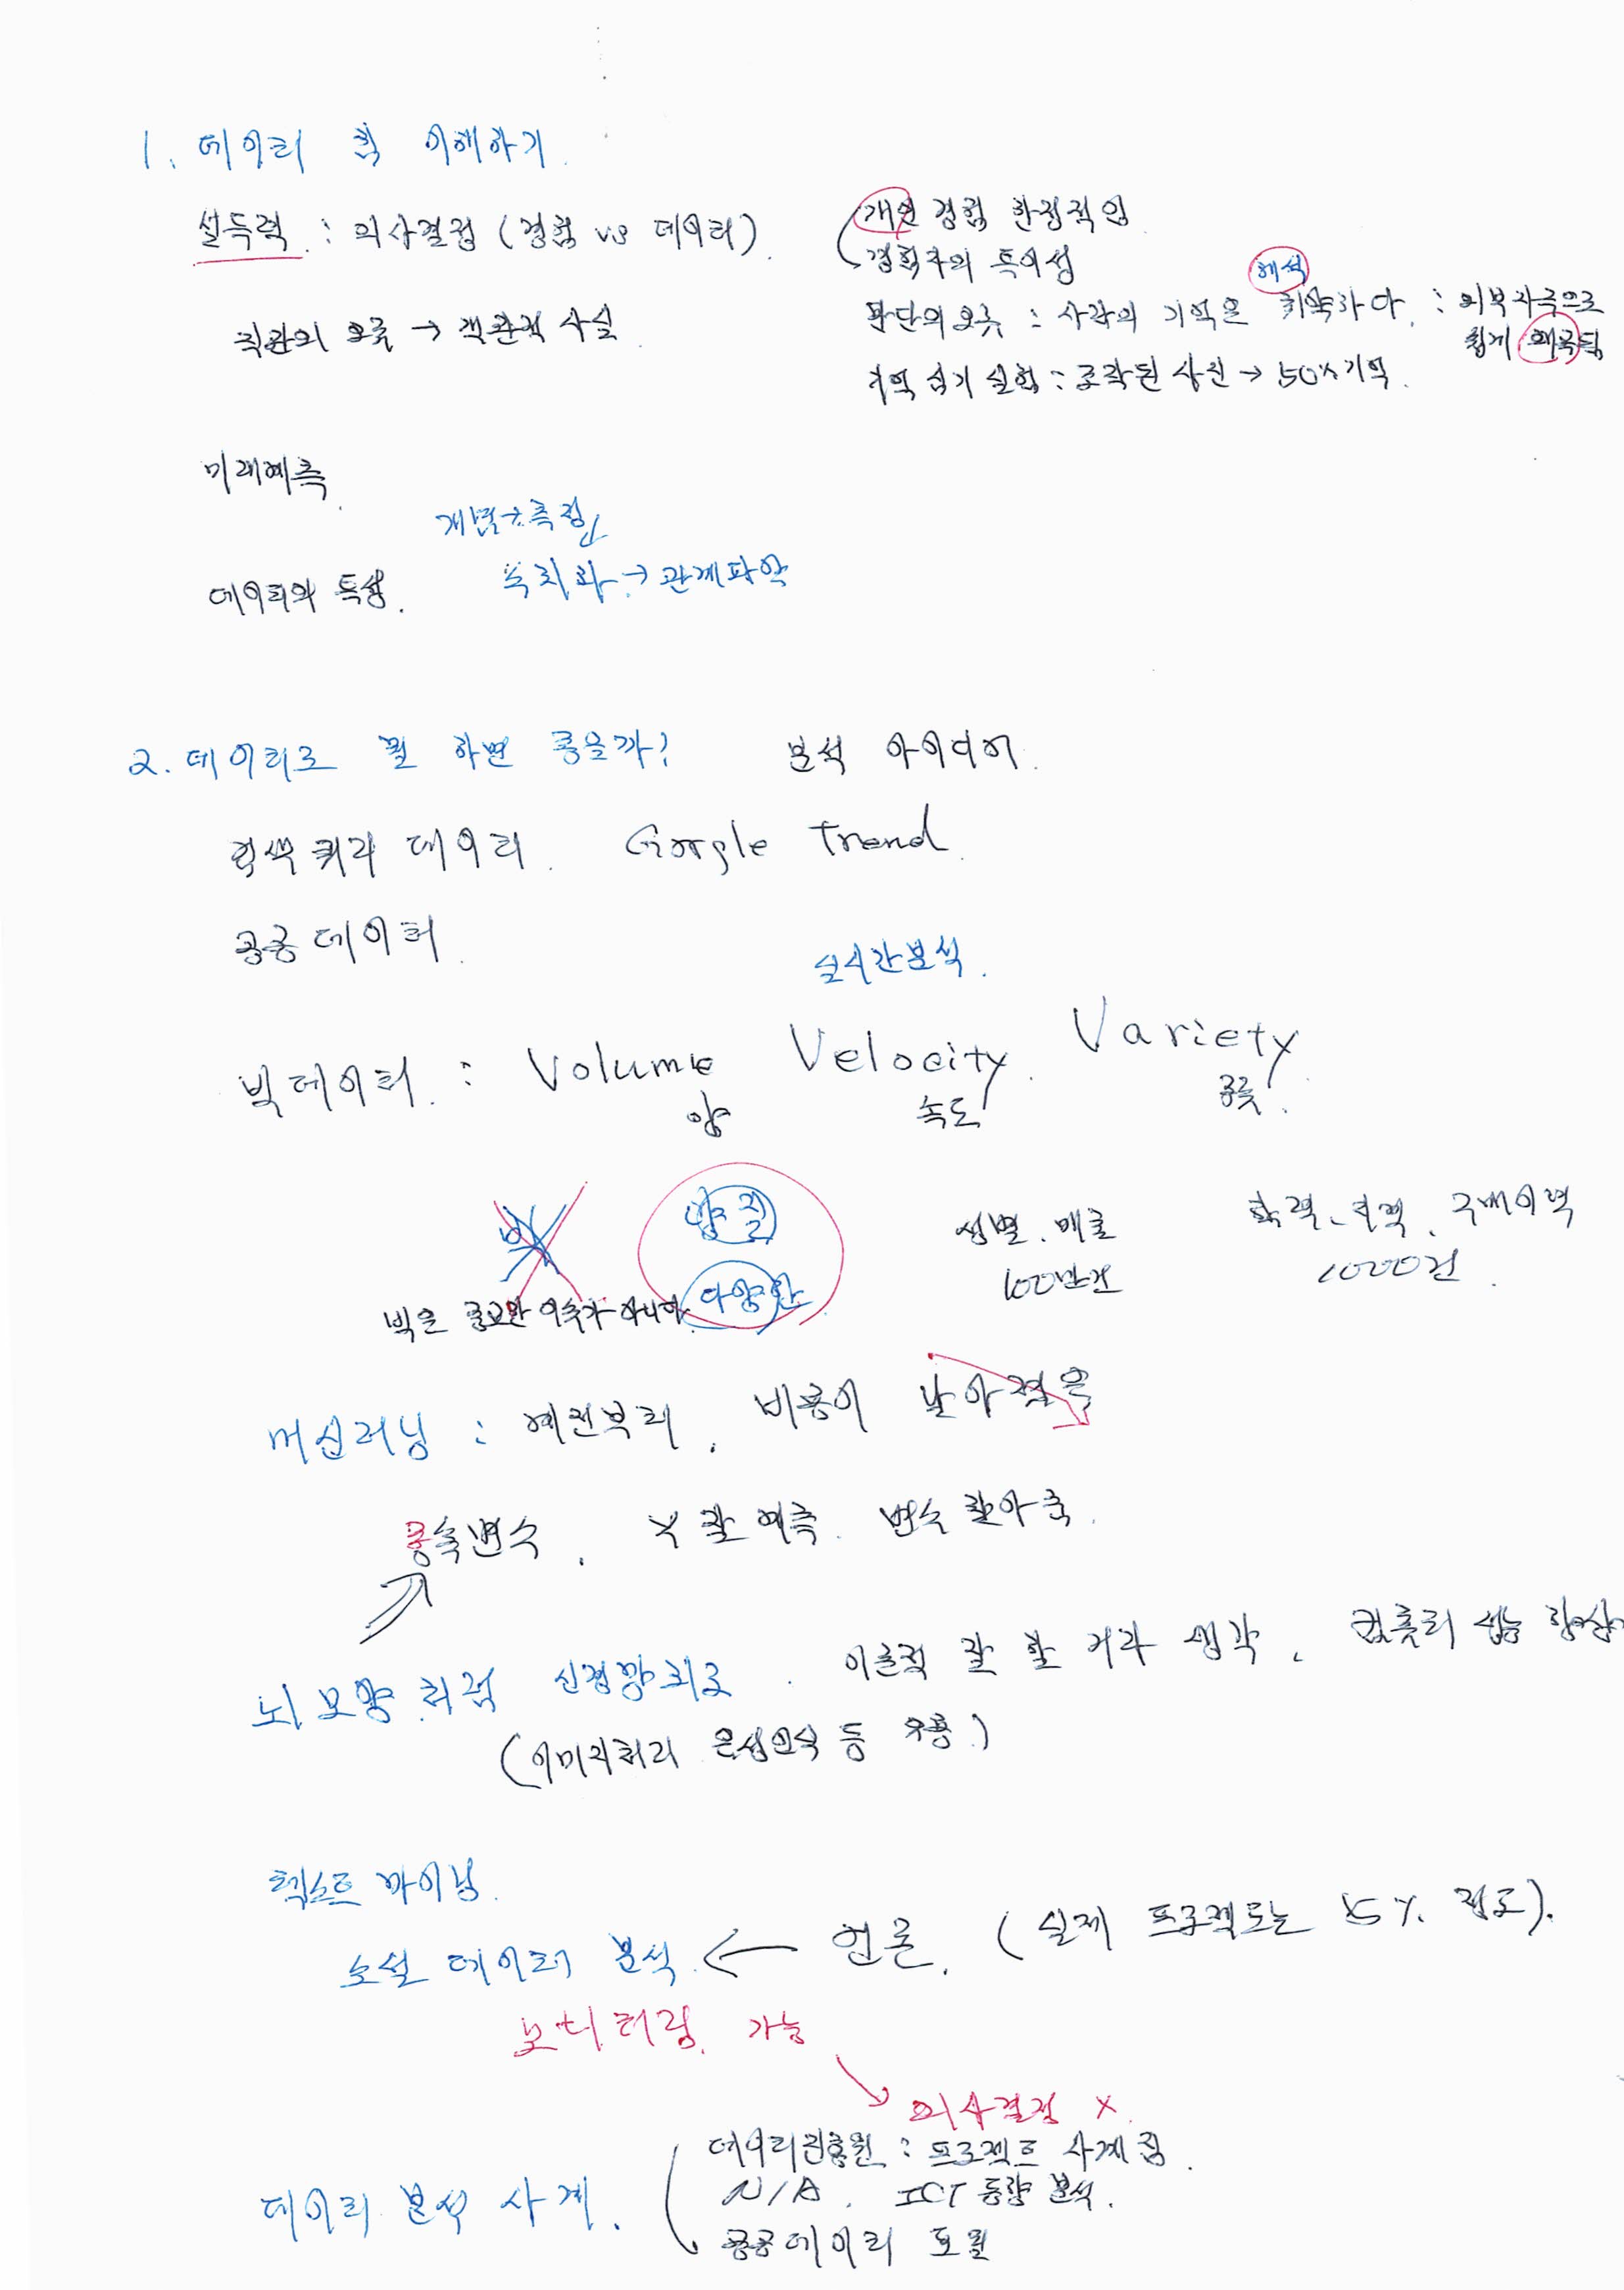 1. 데이터 확 이해하기.
설득력 : 의사결정 (경험 vs 데이터).
개인 경험 한정적임
경험자의 특이성
직관의 오류 → 객관적 사실.
해석
판단의 오류 : 사람의 기억은 취약하다. : 외부자극으로
쉽게 왜곡됨
기억 심기 실험 : 조작된 사진 → 50% 기억.
미래예측.
개념 → 측정
데이터의 특성.
숫치화 → 관계파악
2. 데이터로 뭘 하면 좋을까? 분석 아이디어.
검색쿼리 데이터. Google Trend.
공공데이터.
실시간분석.
빅데이터. : Volume Velocity. Variety
양 속도 종류.
빅
양질
다양한
성별. 매출
100만건
학력. 구매이력
1000건.
빅은 중요한 이슈가 아니다.
머신러닝 : 예전부터, 비용이 낮아졌음
종속변수. Y 잘 예측. 변수 찾아줌.
뇌 모양처럼 신경망회로. 이론적 잘 할 거라 생각, 컴퓨터 성능 향상
(이미지처리 음성인식 등 유용.)
텍스트 마이닝.
소셜 데이터 분석. ← 언론. (실제 프로젝트는 5% 정도).
모니터링. 가능
의사결정 X.
데이터 분석 사례.
데이터진흥원 : 프로젝트 사례집.
NIA. ICT 동향 분석.
공공데이터 포털